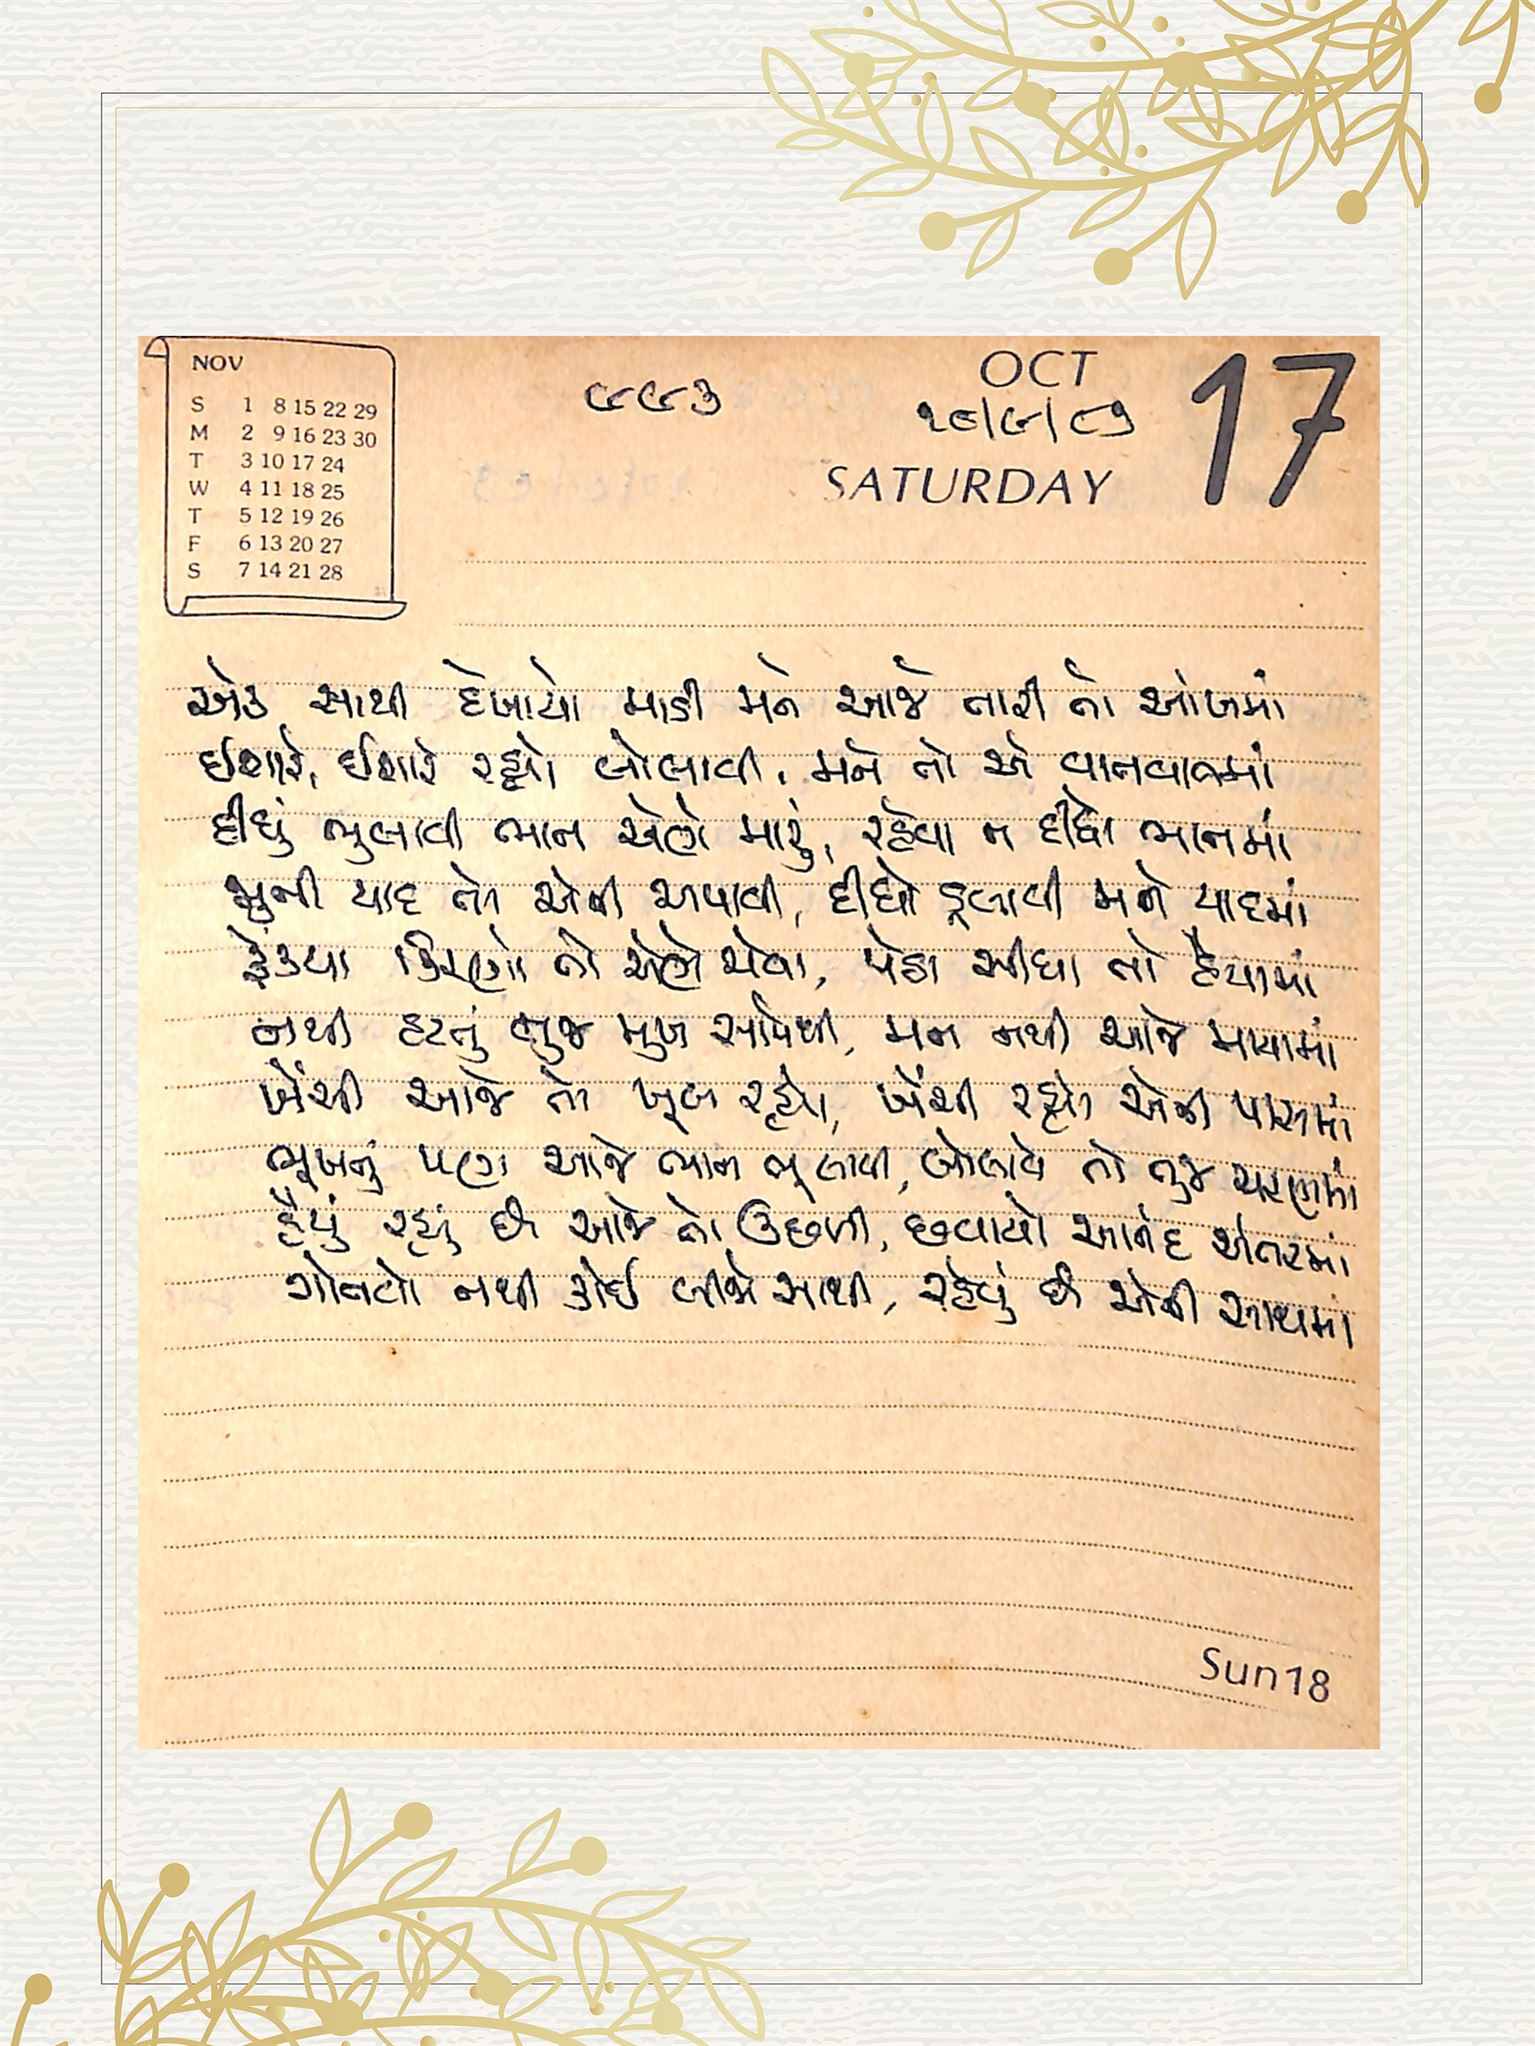 NOV
S 1 8 15 22 29
M 2 9 16 23 30
T 3 10 17 24
W 4 11 18 25
T 5 12 19 26
F 6 13 20 27
S 7 14 21 28
OCT 17
૯૯૩
૧૮/૯/૮૭
SATURDAY
એક સાથી દેખાયો માડી મને આજે તારી તો આંખમાં
ઈશારે, ઈશારે રહ્યો બોલાવી, મને તો એ વાતવાતમાં
દીધું ભુલાવી ભાન એણે મારું, રહેવા ન દીધો ભાનમાં
જુની યાદ તો એની અપાવી, દીધો ડૂબાવી મને યાદમાં
ફેંક્યા કિરણો તો એણે એવા, પેઠા સીધા તો હૈયામાં
નથી હટતું મુજ મુખ સામેથી, મન નથી આજે માયામાં
ખેંચી આજે તો ખૂબ રહ્યો, ખેંચી રહ્યો એની પાસમાં
ભૂખનું પણ આજે ભાન ભૂલાવી, બોલાવે તો તુજ ચરણમાં
હૈયું રહ્યું છે આજે તો ઉછળી, છવાયો આનંદ અંતરમાં
ગોતવો નથી કોઈ બીજો સાથી, રહેવું છે એની સાથમાં
Sun 18